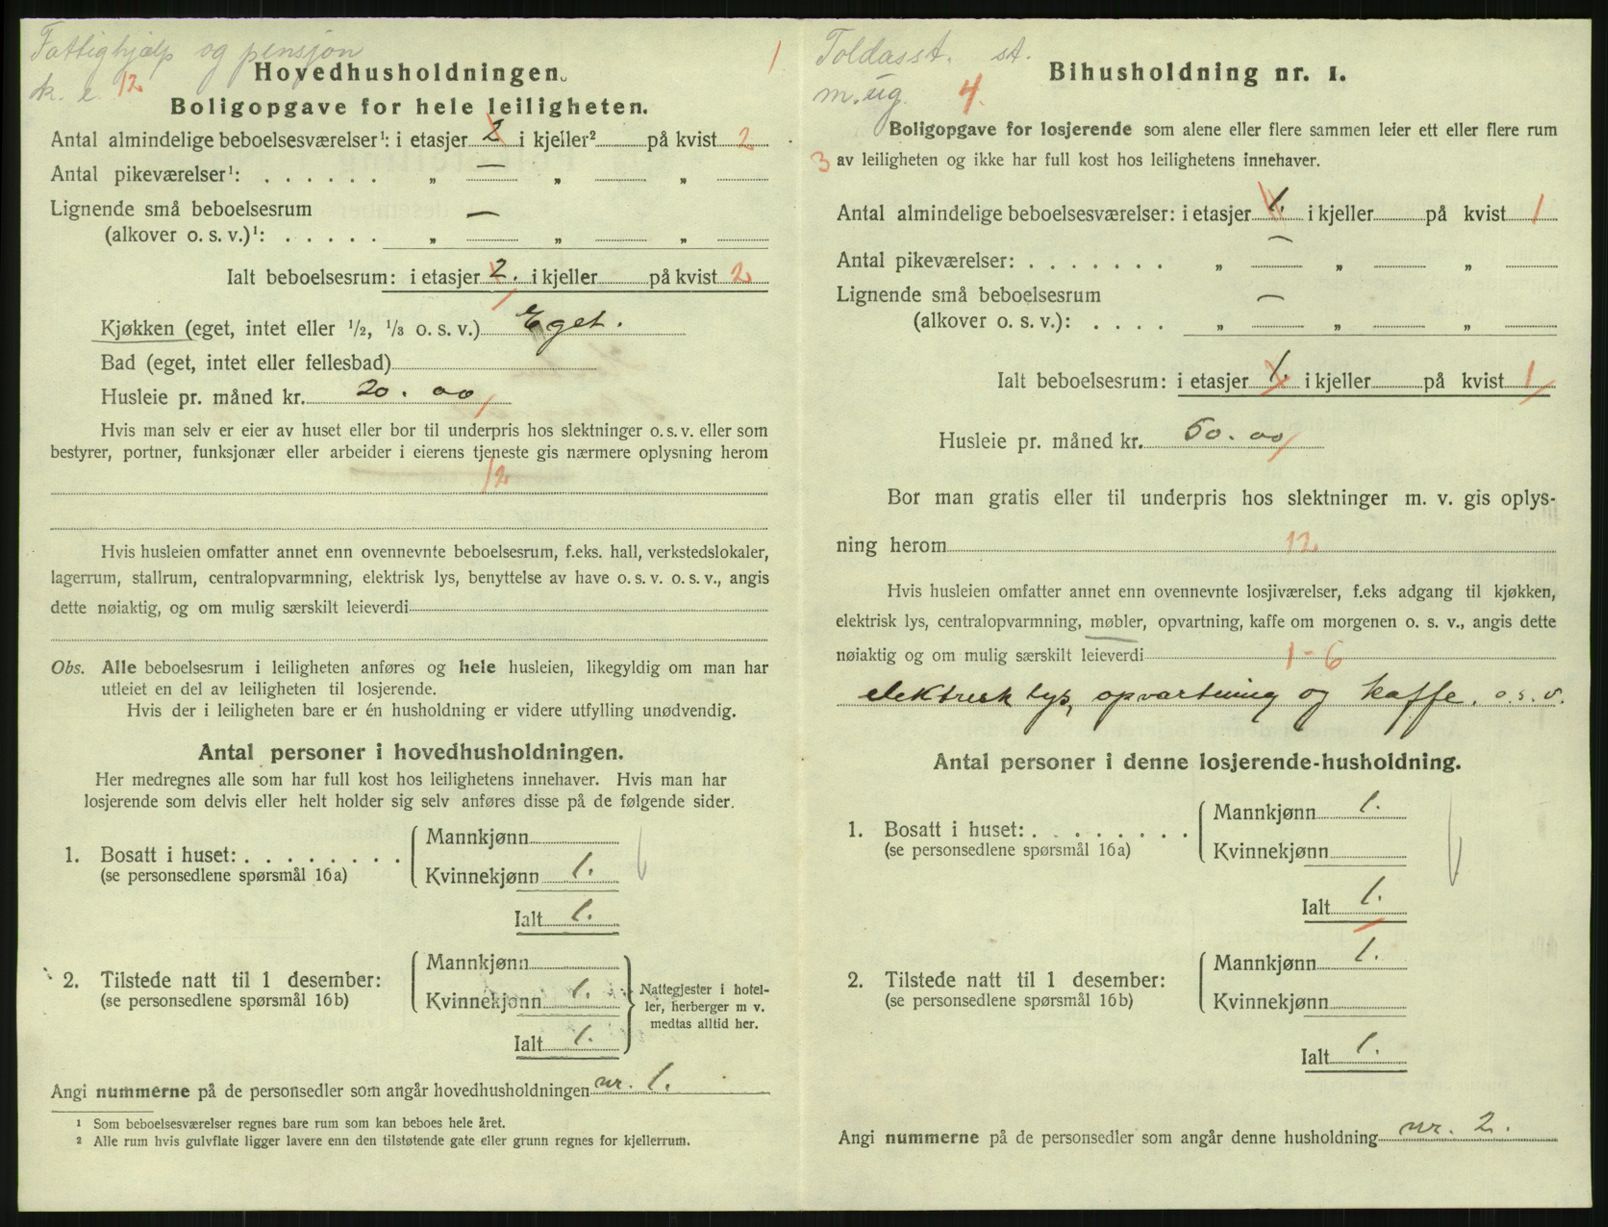 Fattighjælp og pensjon
k. e. 12
1
Hovedhusholdningen.
Boligopgave for hele leiligheten.
Antal almindelige beboelsesværelser¹: i etasjer 2 i kjeller² på kvist 2
Antal pikeværelser¹: . . . . . . „ — „ „
Lignende små beboelsesrum
(alkover o. s. v.)¹: . . . . . „ — „ „
Ialt beboelsesrum: i etasjer 2. i kjeller på kvist 2
Kjøkken (eget, intet eller 1/2, 1/3 o. s. v.) Eget.
Bad (eget, intet eller fellesbad)
Husleie pr. måned kr. 20. 00
Hvis man selv er eier av huset eller bor til underpris hos slektninger o. s. v. eller som
bestyrer, portner, funksjonær eller arbeider i eierens tjeneste gis nærmere oplysning herom
12
Hvis husleien omfatter annet enn ovennevnte beboelsesrum, f.eks. hall, verkstedslokaler,
lagerrum, stallrum, centralopvarmning, elektrisk lys, benyttelse av have o. s. v. o. s. v., angis
dette nøiaktig, og om mulig særskilt leieverdi
Obs. Alle beboelsesrum i leiligheten anføres og hele husleien, likegyldig om man har
utleiet en del av leiligheten til losjerende.
Hvis der i leiligheten bare er én husholdning er videre utfylling unødvendig.
Antal personer i hovedhusholdningen.
Her medregnes alle som har full kost hos leilighetens innehaver. Hvis man har
losjerende som delvis eller helt holder sig selv anføres disse på de følgende sider.
Mannkjønn
1. Bosatt i huset: . . . . . . . .
(se personsedlene spørsmål 16a)
Kvinnekjønn 1.
Ialt 1.
Mannkjønn
2. Tilstede natt til 1 desember:
(se personsedlene spørsmål 16b)
Kvinnekjønn 1.
Ialt 1.
Nattegjester i hotel-
ler, herberger m v.
medtas alltid her.
Angi nummerne på de personsedler som angår hovedhusholdningen nr. 1.
¹ Som beboelsesværelser regnes bare rum som kan beboes hele året.
² Alle rum hvis gulvflate ligger lavere enn den tilstøtende gate eller grunn regnes for kjellerrum.
Toldasst. st.
m. ug. 4.
Bihusholdning nr. 1.
Boligopgave for losjerende som alene eller flere sammen leier ett eller flere rum
3 av leiligheten og ikke har full kost hos leilighetens innehaver.
Antal almindelige beboelsesværelser: i etasjer 1. i kjeller på kvist 1
Antal pikeværelser: . . . . . . . „ — „ „
Lignende små beboelsesrum
(alkover o. s. v.): . . . . „ — „ „
Ialt beboelsesrum: i etasjer 1. i kjeller på kvist 1
Husleie pr. måned kr. 50. 00
Bor man gratis eller til underpris hos slektninger m. v. gis oplys-
ning herom 12
Hvis husleien omfatter annet enn ovennevnte losjiværelser, f.eks adgang til kjøkken,
elektrisk lys, centralopvarmning, møbler, opvartning, kaffe om morgenen o. s. v., angis dette
nøiaktig og om mulig særskilt leieverdi 1-6
elektrisk lys, opvartning og kaffe. o. s. v.
Antal personer i denne losjerende-husholdning.
Mannkjønn 1.
1. Bosatt i huset: . . . . . . . .
(se personsedlene spørsmål 16a)
Kvinnekjønn
Ialt 1.
Mannkjønn 1.
2. Tilstede natt til 1 desember:
(se personsedlene spørsmål 16b)
Kvinnekjønn
Ialt 1.
Angi nummerne på de personsedler som angår denne husholdning nr. 2.